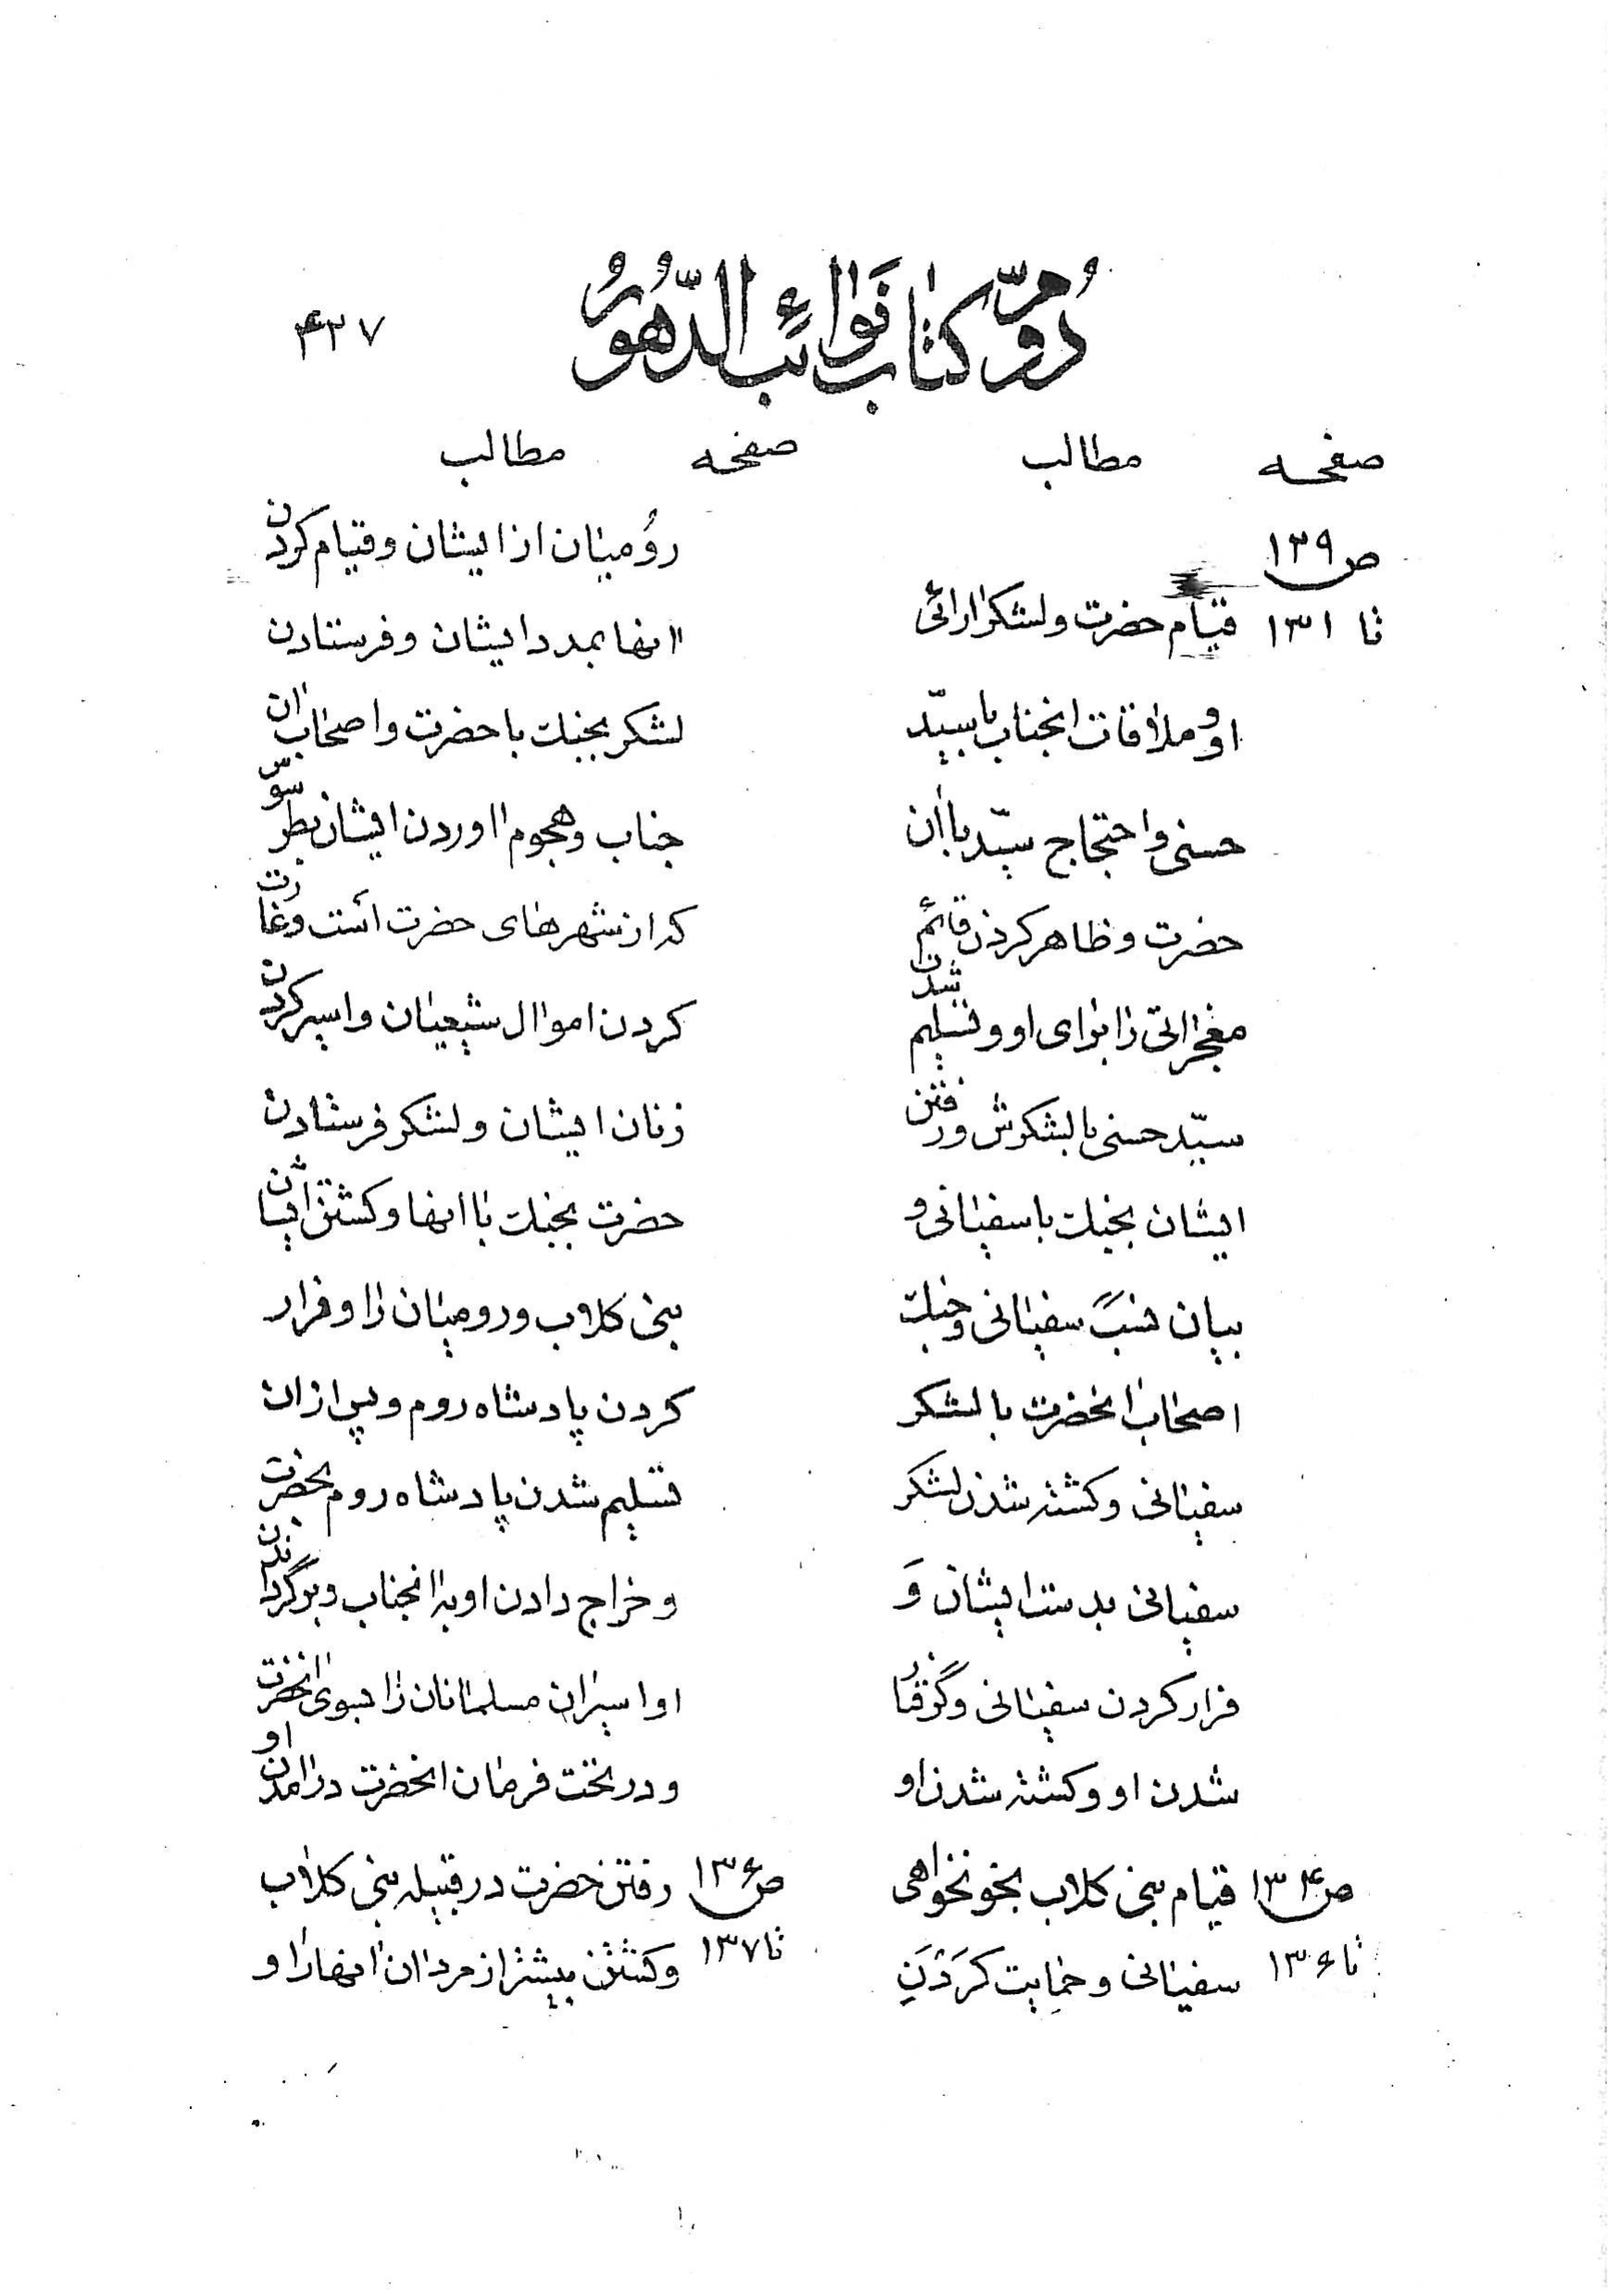 دوّم کتاب نوائب الدّهور
۴۳۷
صفحه مطالب
ص ۱۳۹
تا ۱۳۱ قیام حضرت و لشکرارائی
او و ملاقات انجناب با سیّد
حسنی و احتجاج سیّد با ان
حضرت و ظاهر کردن قائم
معجزاتی را برای او و تسلیم شدن
سیّد حسنی با لشکرش و رفتن
ایشان بجنک با سفیانی و
بیان نسب سفیانی و جنک
اصحاب انحضرت با لشکر
سفیانی و کشته شدن لشکر
سفیانی بدست ایشان وَ
فرار کردن سفیانی و گرفتار
شدن او و کشته شدن او
ص ۱۳۴ قیام بنی کلاب بخونخواهی
تا ۱۳۶ سفیانی و حمایت کردَنِ
صفحه مطالب
رُومیان از ایشان و قیام کردن
انها بمدد ایشان و فرستادن
لشکر بجنک با حضرت و اصحاب ان
جناب و هجوم اوردن ایشان بطرسوّس
که از شهرهای حضرت است و غارت
کردن اموال شیعیان و اسیر کردن
زنان ایشان و لشکر فرستادن
حضرت بجنک با انها و کشتن ایشان
بنی کلاب و رومیان را و فرار
کردن پادشاه روم و پس از ان
تسلیم شدن پادشاه روم بحضرت
و خراج دادن او به انجناب و برگرداندن
او اسیران مسلمانان را بسوی انحضرت
و در تخت فرمان انحضرت درامدن او
ص ۱۳۶ رفتن حضرت در قبیله بنی کلاب
تا ۱۳۷ و کشتن بیشتر از مردان انها را و